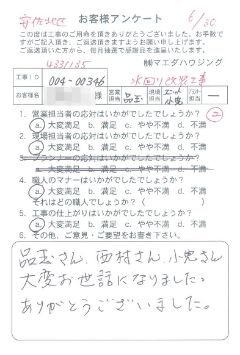 安佐北区 お客様アンケート 6/30
この度は工事のご用命を頂きありがとうございました。お手数で
すがご記入頂き、ご返送頂きますようお願い申し上げます。
ご返送頂きた方から、毎月抽選で感謝品を進呈します。
433/135 ㈱マエダハウジング
工事ID 004-00346 水回り改修工事
お客様名 営業担当 品玉 現場担当
1. 営業担当者の応対はいかがでしたでしょうか? ②
a. 大変満足 b. 満足 c. やや不満 d. 不満
2. 現場担当者の応対はいかがでしたでしょうか?
a. 大変満足 b. 満足 c. やや不満 d. 不満
3. プランナーの応対はいかがでしたでしょうか?
a. 大変満足 b. 満足 c. やや不満 d. 不満
4. 職人のマナーはいかがでしたでしょうか?
a. 大変満足 b. 満足 c. やや不満 d. 不満
それはどの職人でしょうか? ( )
5. 工事の仕上がりはいかがでしたでしょうか?
a. 大変満足 b. 満足 c. やや不満 d. 不満
6. その他、ご意見・ご要望をお書き下さい。
品玉さん、西村さん、小鬼さん
大変お世話になりました。
ありがとうございました。